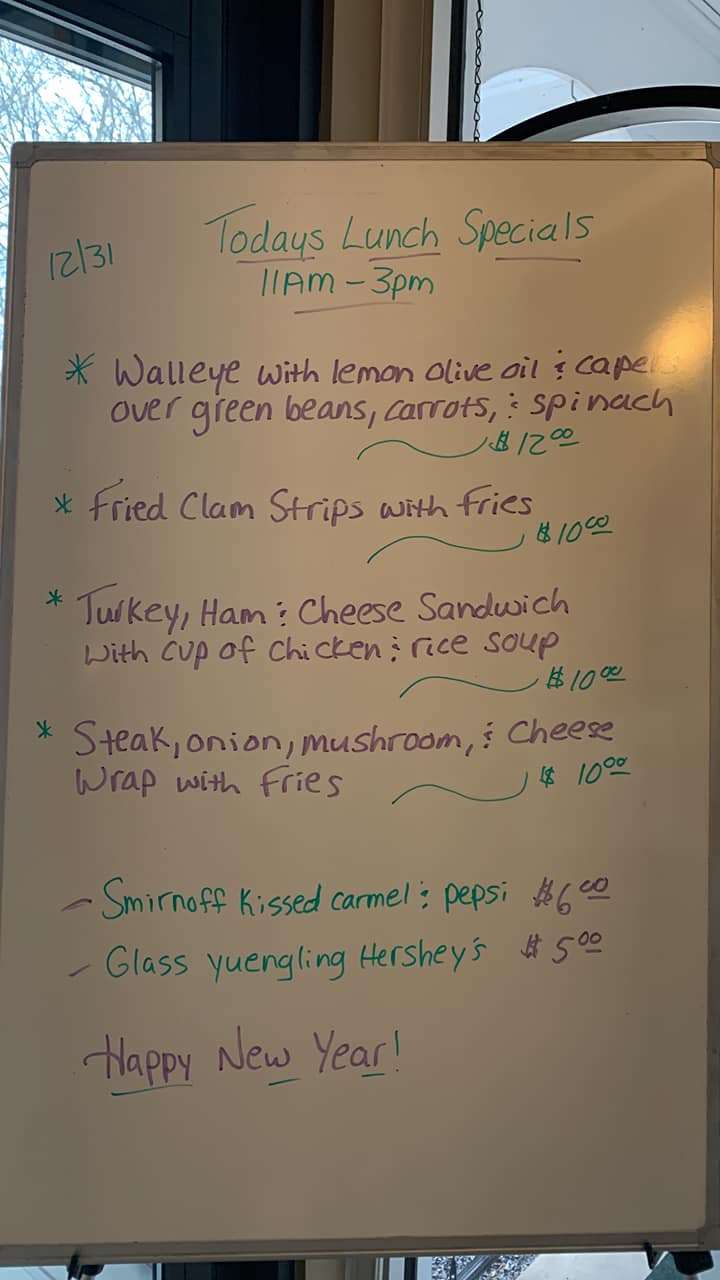 12/31
Todays Lunch Specials
11AM - 3pm
* Walleye with lemon olive oil & capers
over green beans, carrots, & spinach
$12.00
* Fried Clam Strips with Fries
$10.00
* Turkey, Ham & Cheese Sandwich
With cup of chicken & rice soup
$10.00
* Steak, onion, mushroom, & Cheese
Wrap with Fries
$ 10.00
- Smirnoff Kissed carmel & pepsi $6.00
- Glass yuengling Hershey's $5.00
Happy New Year!